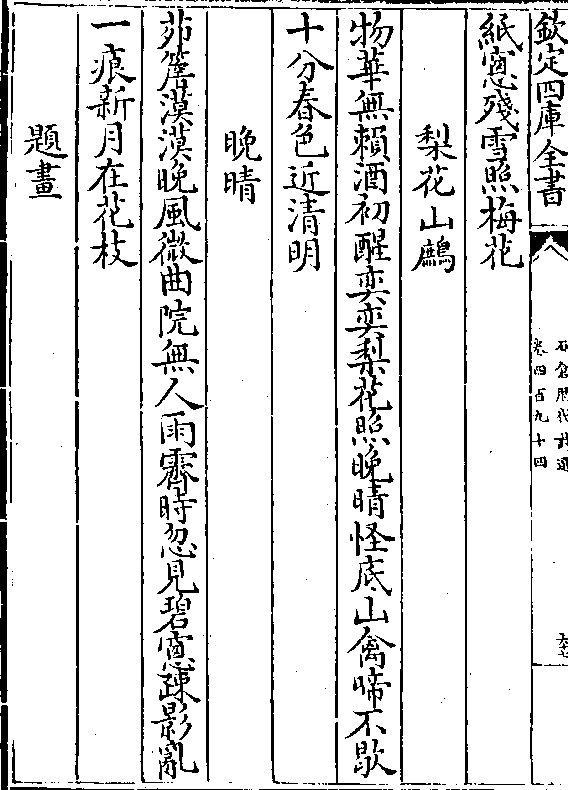 欽定四庫全書
石倉歷代詩選
卷四百九十四
紙窻殘雪照梅花
梨花山鷓
物華無賴酒初醒奕奕梨花照晚晴怪底山禽啼不歇
十分春色近清明
晚晴
茆簷漠漠晚風微曲院無人雨霽時忽見碧窻踈影亂
一痕新月在花枝
題畫